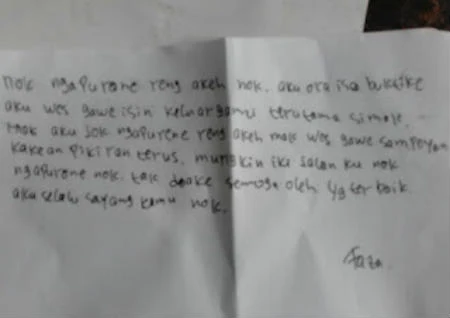 nok ngapurane reng akeh nok. aku ora isa buktike
aku wes gawe isin keluargamu terutama simak.
mak aku jok ngapurene reng akeh mak wes gawe sampeyan
kakean pikiran terus. mungkin iki salan ku nok
ngapurone nok. tak doake semoga oleh yg terbaik.
aku selalu sayang kamu nok.
Faza.